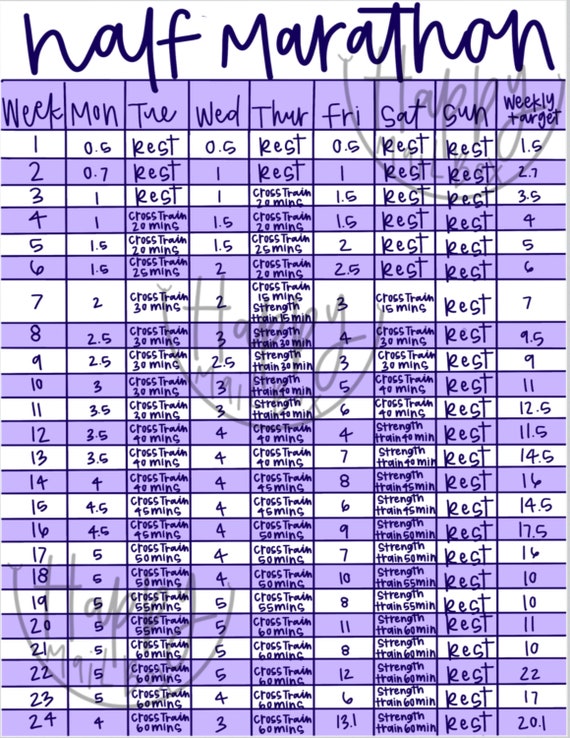 half marathon
Week Mon Tue Wed Thur Fri Sat Sun Weekly target
1 0.5 Rest 0.5 Rest 0.5 Rest Rest 1.5
2 0.7 Rest 1 Rest 1 Rest Rest 2.7
3 1 Rest 1 CrossTrain 20 mins 1.5 Rest Rest 3.5
4 1 CrossTrain 20 mins 1.5 CrossTrain 20 mins 1.5 Rest Rest 4
5 1.5 CrossTrain 20 mins 1.5 CrossTrain 25 mins 2 Rest Rest 5
6 1.5 CrossTrain 25 mins 2 CrossTrain 20 mins 2.5 Rest Rest 6
7 2 CrossTrain 30 mins 2 CrossTrain 15 mins Strength train 15 min 3 CrossTrain 15 mins Rest 7
8 2.5 CrossTrain 30 mins 3 Strength train 30 min 4 CrossTrain 30 mins Rest 9.5
9 2.5 CrossTrain 30 mins 2.5 Strength train 30 min 3 CrossTrain 30 mins Rest 9
10 3 CrossTrain 30 mins 3 Strength train 40 min 5 CrossTrain 40 mins Rest 11
11 3.5 CrossTrain 30 mins 3 Strength train 40 min 6 CrossTrain 40 mins Rest 12.5
12 3.5 CrossTrain 40 mins 4 CrossTrain 40 mins 4 Strength train 40 min Rest 11.5
13 3.5 CrossTrain 40 mins 4 CrossTrain 40 mins 7 Strength train 40 min Rest 14.5
14 4 CrossTrain 40 mins 4 CrossTrain 45 mins 8 Strength train 45 min Rest 16
15 4.5 CrossTrain 45 mins 4 CrossTrain 45 mins 6 Strength train 45 min Rest 14.5
16 4.5 CrossTrain 45 mins 4 CrossTrain 50 mins 9 Strength train 50 min Rest 17.5
17 5 CrossTrain 50 mins 4 CrossTrain 50 mins 7 Strength train 50 min Rest 16
18 5 CrossTrain 50 mins 4 CrossTrain 50 mins 10 Strength train 55 min Rest 10
19 5 CrossTrain 55 mins 5 CrossTrain 55 mins 8 Strength train 55 min Rest 10
20 5 CrossTrain 55 mins 5 CrossTrain 60 mins 11 Strength train 60 min Rest 11
21 5 CrossTrain 60 mins 5 CrossTrain 60 mins 8 Strength train 60 min Rest 10
22 5 CrossTrain 60 mins 5 CrossTrain 60 mins 12 Strength train 60 min Rest 22
23 5 CrossTrain 60 mins 4 CrossTrain 60 mins 6 Strength train 60 min Rest 17
24 4 CrossTrain 60 mins 3 CrossTrain 60 mins 13.1 Strength train 60 min Rest 20.1
Happy
Happy
Happy